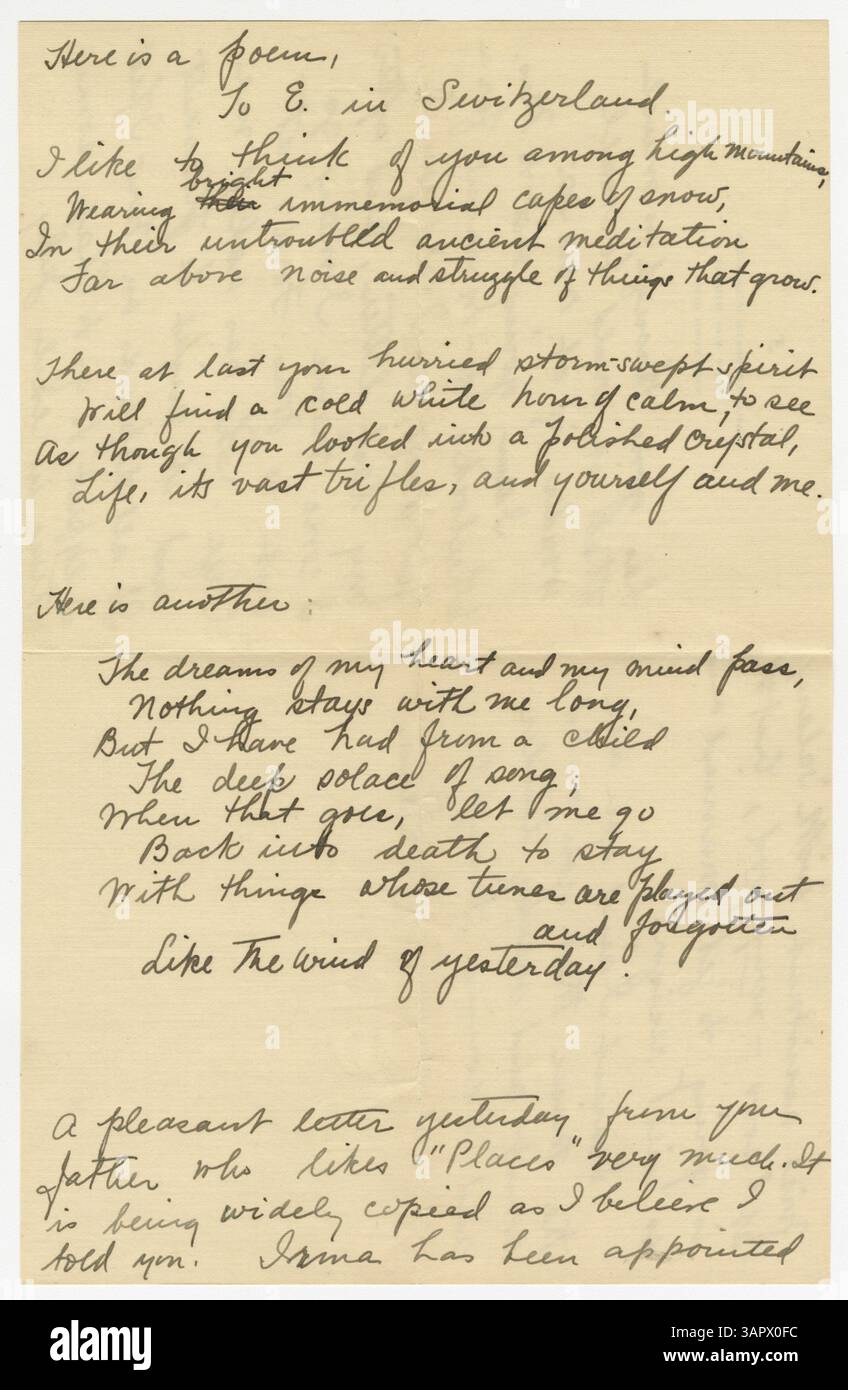 Here is a poem,
To E. in Switzerland.
I like to think of you among high mountains,
bright
Wearing immemorial capes of snow,
In their untroubled ancient meditation
Far above noise and struggle of things that grow.
There at last your hurried storm-swept spirit
Will find a cold white hour of calm, to see
As though you looked into a polished crystal,
Life, its vast trifles, and yourself and me.
Here is another:
The dreams of my heart and my mind pass,
Nothing stays with me long,
But I have had from a child
The deep solace of song;
When that goes, let me go
Back into death to stay
With things whose tunes are played out
and forgotten
Like the wind of yesterday.
A pleasant letter yesterday from your
father who likes "Places" very much. It
is being widely copied as I believe I
told you. Irma has been appointed
alamy
Image ID: 3APX0FC
www.alamy.com